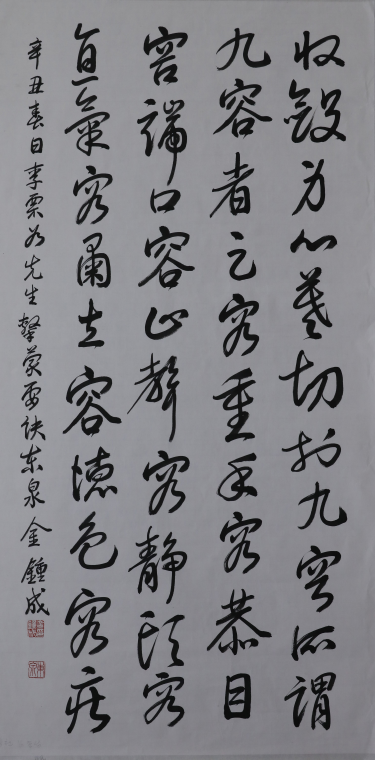 收斂身心莫切於九容所謂
九容者足容重手容恭目
容端口容止聲容靜頭容
直氣容肅立容德色容莊
辛丑春日李栗谷先生擊蒙要訣東泉金鍾成